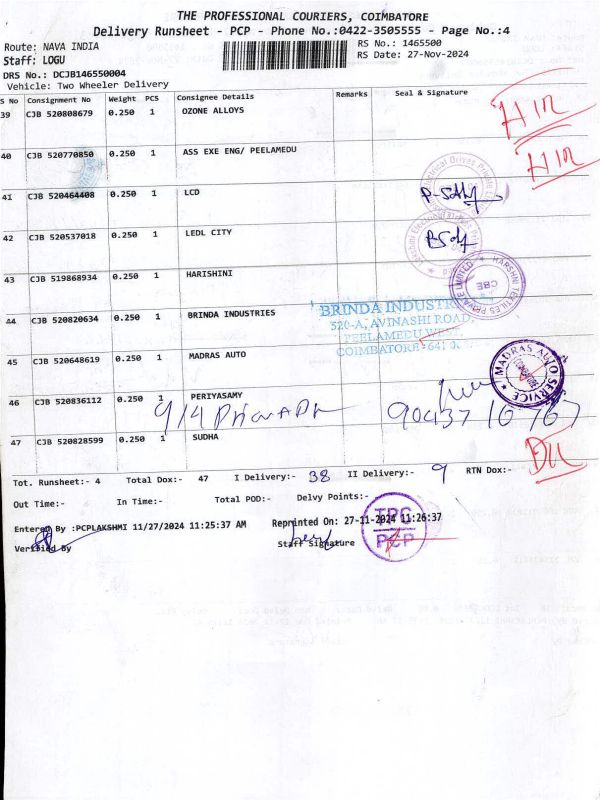 THE PROFESSIONAL COURIERS, COIMBATORE
Delivery Runsheet - PCP - Phone No.:0422-3505555 - Page No.:4
Route: NAVA INDIA RS No.: 1465500
Staff: LOGU RS Date: 27-Nov-2024
DRS No.: DCJB146550004
Vehicle: Two Wheeler Delivery
S No Consignment No Weight PCS Consignee Details Remarks Seal & Signature
39 CJB 520808679 0.250 1 OZONE ALLOYS
40 CJB 520770850 0.250 1 ASS EXE ENG/ PEELAMEDU
41 CJB 520464408 0.250 1 LCD
42 CJB 520537018 0.250 1 LEDL CITY
43 CJB 519868934 0.250 1 HARISHINI
HARSHNI TEXTILES PRIVATE LIMITED CBE
44 CJB 520820634 0.250 1 BRINDA INDUSTRIES
BRINDA INDUSTR
520-A, AVINASHI ROAD,
PEELAMEDU
COIMBATORE - 641 0
45 CJB 520648619 0.250 1 MADRAS AUTO
MADRAS AUTO SERVICE
46 CJB 520836112 0.250 1 PERIYASAMY
90437 16767
47 CJB 520828599 0.250 1 SUDHA
Tot. Runsheet:- 4 Total Dox:- 47 I Delivery:- 38 II Delivery:- 9 RTN Dox:-
Out Time:- In Time:- Total POD:- Delvy Points:-
Entered By :PCPLAKSHMI 11/27/2024 11:25:37 AM Reprinted On: 27-11-2024 11:26:37
TPC
PCP
Verified By Staff Signature